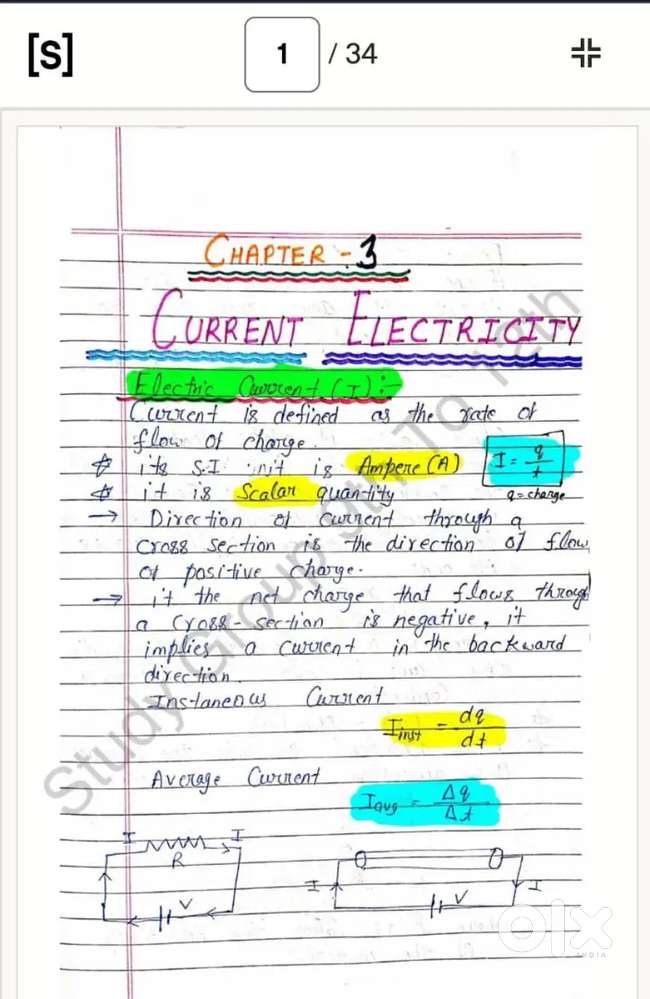 [S]
1 / 34
CHAPTER - 3
CURRENT ELECTRICITY
Electric Current (I) :-
Current is defined as the rate of
flow of charge.
its S.I unit is Ampere (A)
I = q/t
it is Scalar quantity
q = charge
→ Direction of current through a
cross section is the direction of flow
of positive charge.
→ if the net charge that flows through
a cross-section is negative, it
implies a current in the backward
direction.
Instaneous Current
I inst = dq/dt
Average Current
I avg = Δq/Δt
I I
R
V
I I
V
Study Group 9th To 12th
olx
INDIA